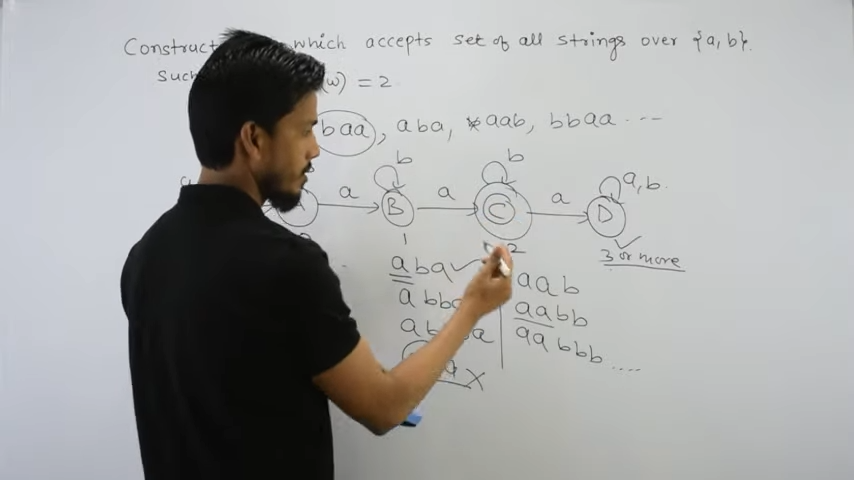 Construct which accepts set of all strings over {a, b}.
Such (w) = 2
baa, aba, aab, bbaa ----
b b
a a a a, b.
A B C D
1 2 3 or more
aba ✓ aab
abb aabb
ab a aabbb ....
a X